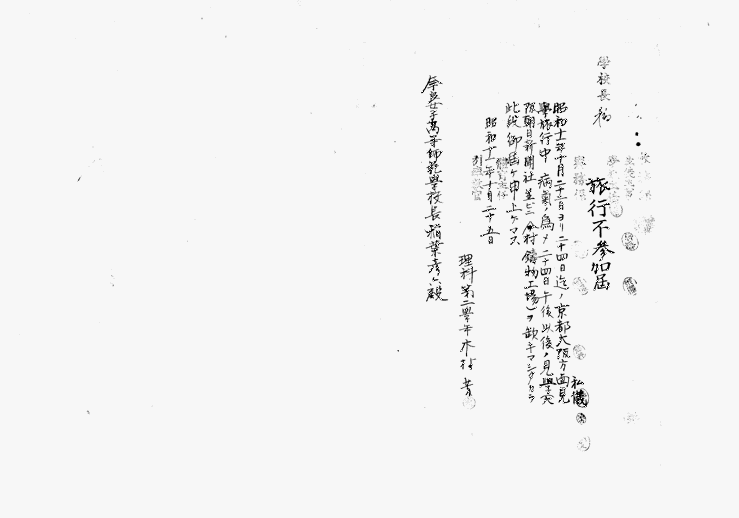 學校長
旅行不参加届
私儀
昭和十一年十月二十二日ヨリ二十四日迄ノ京都大阪方面見
學旅行中 病氣ノ為メ二十四日午後以後ノ見學(大
阪朝日新聞社並ビニ今村鑄物工場)ヲ欽キマシタカラ
此段御届ケ申上ゲマス
昭和十一年十月二十五日
理科第二學年 木村
奈良女子高等師範學校長 稲葉彦六殿